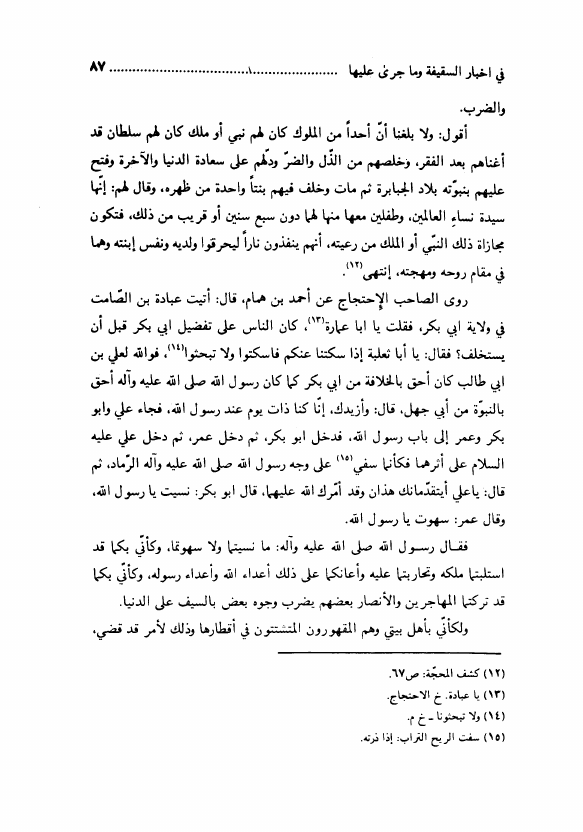 في اخبار السقيفة وما جرىٰ عليها ........................................................ ٨٧
والضرب.
أقول: ولا بلغنا أنّ أحداً من الملوك كان لهم نبي أو ملك كان لهم سلطان قد
أغناهم بعد الفقر، وخلصهم من الذّل والضرّ ودلّهم على سعادة الدنيا والآخرة وفتح
عليهم بنبوّته بلاد الجبابرة ثم مات وخلف فيهم بنتاً واحدة من ظهره، وقال لهم: إنّها
سيدة نساءِ العالمين، وطفلين معها منها لهما دون سبع سنين أو قريب من ذلك، فتكون
مجازاة ذلك النبّي أو الملك من رعيته، أنهم ينفذون ناراً ليحرقوا ولديه ونفس إبنته وهما
في مقام روحه ومهجته، إنتهى(١٢).
روى الصاحب الإحتجاج عن أحمد بن همام، قال: أتيت عبادة بن الصّامت
في ولاية ابي بكر، فقلت يا ابا عمارة(١٣)، كان الناس على تفضيل ابي بكر قبل أن
يستخلف؟ فقال: يا أبا ثعلبة إذا سكتنا عنكم فاسكتوا ولا تبحثوا(١٤)، فوالله لعلي بن
ابي طالب كان أحق بالخلافة من ابي بكر كما كان رسول الله صلى الله عليه وآله أحق
بالنبوّة من أبي جهل، قال: وأزيدك، إنّا كنا ذات يوم عند رسول الله، فجاء علي وابو
بكر وعمر إلى باب رسول الله، فدخل ابو بكر، ثم دخل عمر، ثم دخل علي عليه
السلام على أثرهما فكأنما سفي(١٥) على وجه رسول الله صلى الله عليه وآله الرّماد، ثم
قال: ياعلي أيتقدّمانك هذان وقد أمّرك الله عليهما، قال ابو بكر: نسيت يا رسول الله،
وقال عمر: سهوت يا رسول الله.
فقال رسول الله صلى الله عليه وآله: ما نسيتما ولا سهوتما، وكأنّي بكما قد
استلبتما ملكه وتحاربتما عليه وأعانكما على ذلك أعداء الله وأعداء رسوله، وكأنّي بكما
قد تركتما المهاجرين والأنصار بعضهم يضرب وجوه بعض بالسيف على الدنيا.
ولكأنّي بأهل بيتي وهم المقهورون المتشتتون في أقطارها وذلك لأمر قد قضي،
(١٢) كشف المحجّة: ص٦٧.
(١٣) يا عبادة. خ الاحتجاج.
(١٤) ولا تبحثونا ـ خ م.
(١٥) سفت الريح التراب: إذا ذرته.